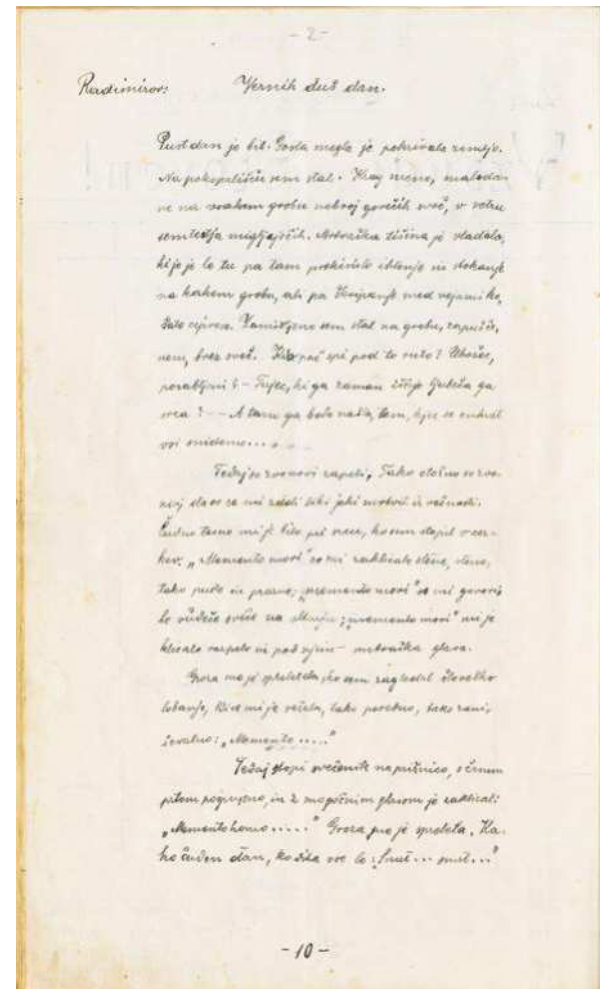 - 2 -
Radimirov: Vernih duš dan.
Pust dan je bil. Gosta megla je pokrivala zemljo.
Na pokopališču sem stal. Kraj mene, malodane
na vsakem grobu nebroj gorečih sveč, v vetru
semtertja migljajočih. Mrtvaška tišina je vladala,
ki je je le tu pa tam prekinilo ihtenje in stokanje
na kakem grobu, ali pa škripanje med vejami
Zamišljeno sem stal na grobu, zapušče-
nem, brez sveč. Kdo pač spi pod to rušo? Ubožec,
pozabljeni? - Tujec, ki ga zaman iščejo ljubeča ga
srca? - - A tam ga bodo našla, tam, kjer se enkrat
vsi snidemo....
Tedaj so zvonovi zapeli. Tako otožno so zvo-
nili, da so se mi zdeli kakor mrtvih iz večnosti.
Čudno tesno mi je bilo pri srcu, ko sem stopil v cer-
kev. „Memento mori" so mi zaklicale stene,
tako puste in prazne; „memento mori" so mi govori-
le rdeče sveče na oltarju; „memento mori" mi je
klicalo razpelo in pod njim - mrtvaška glava.
Groza me je spreletela, ko sem zagledal človeško
lobanjo, ki se mi je režala, tako porobno, tako zani-
čevalno: „Memento....."
Tedaj stopi svečenik na prižnico, s črnim
prtom pogrnjeno, in z mogočnim glasom je zaklical:
„Memento homo....." Groza me je spreletela. Ka-
ko čuden dan, ko diha vse le: Smrt... smrt..."
- 10 -